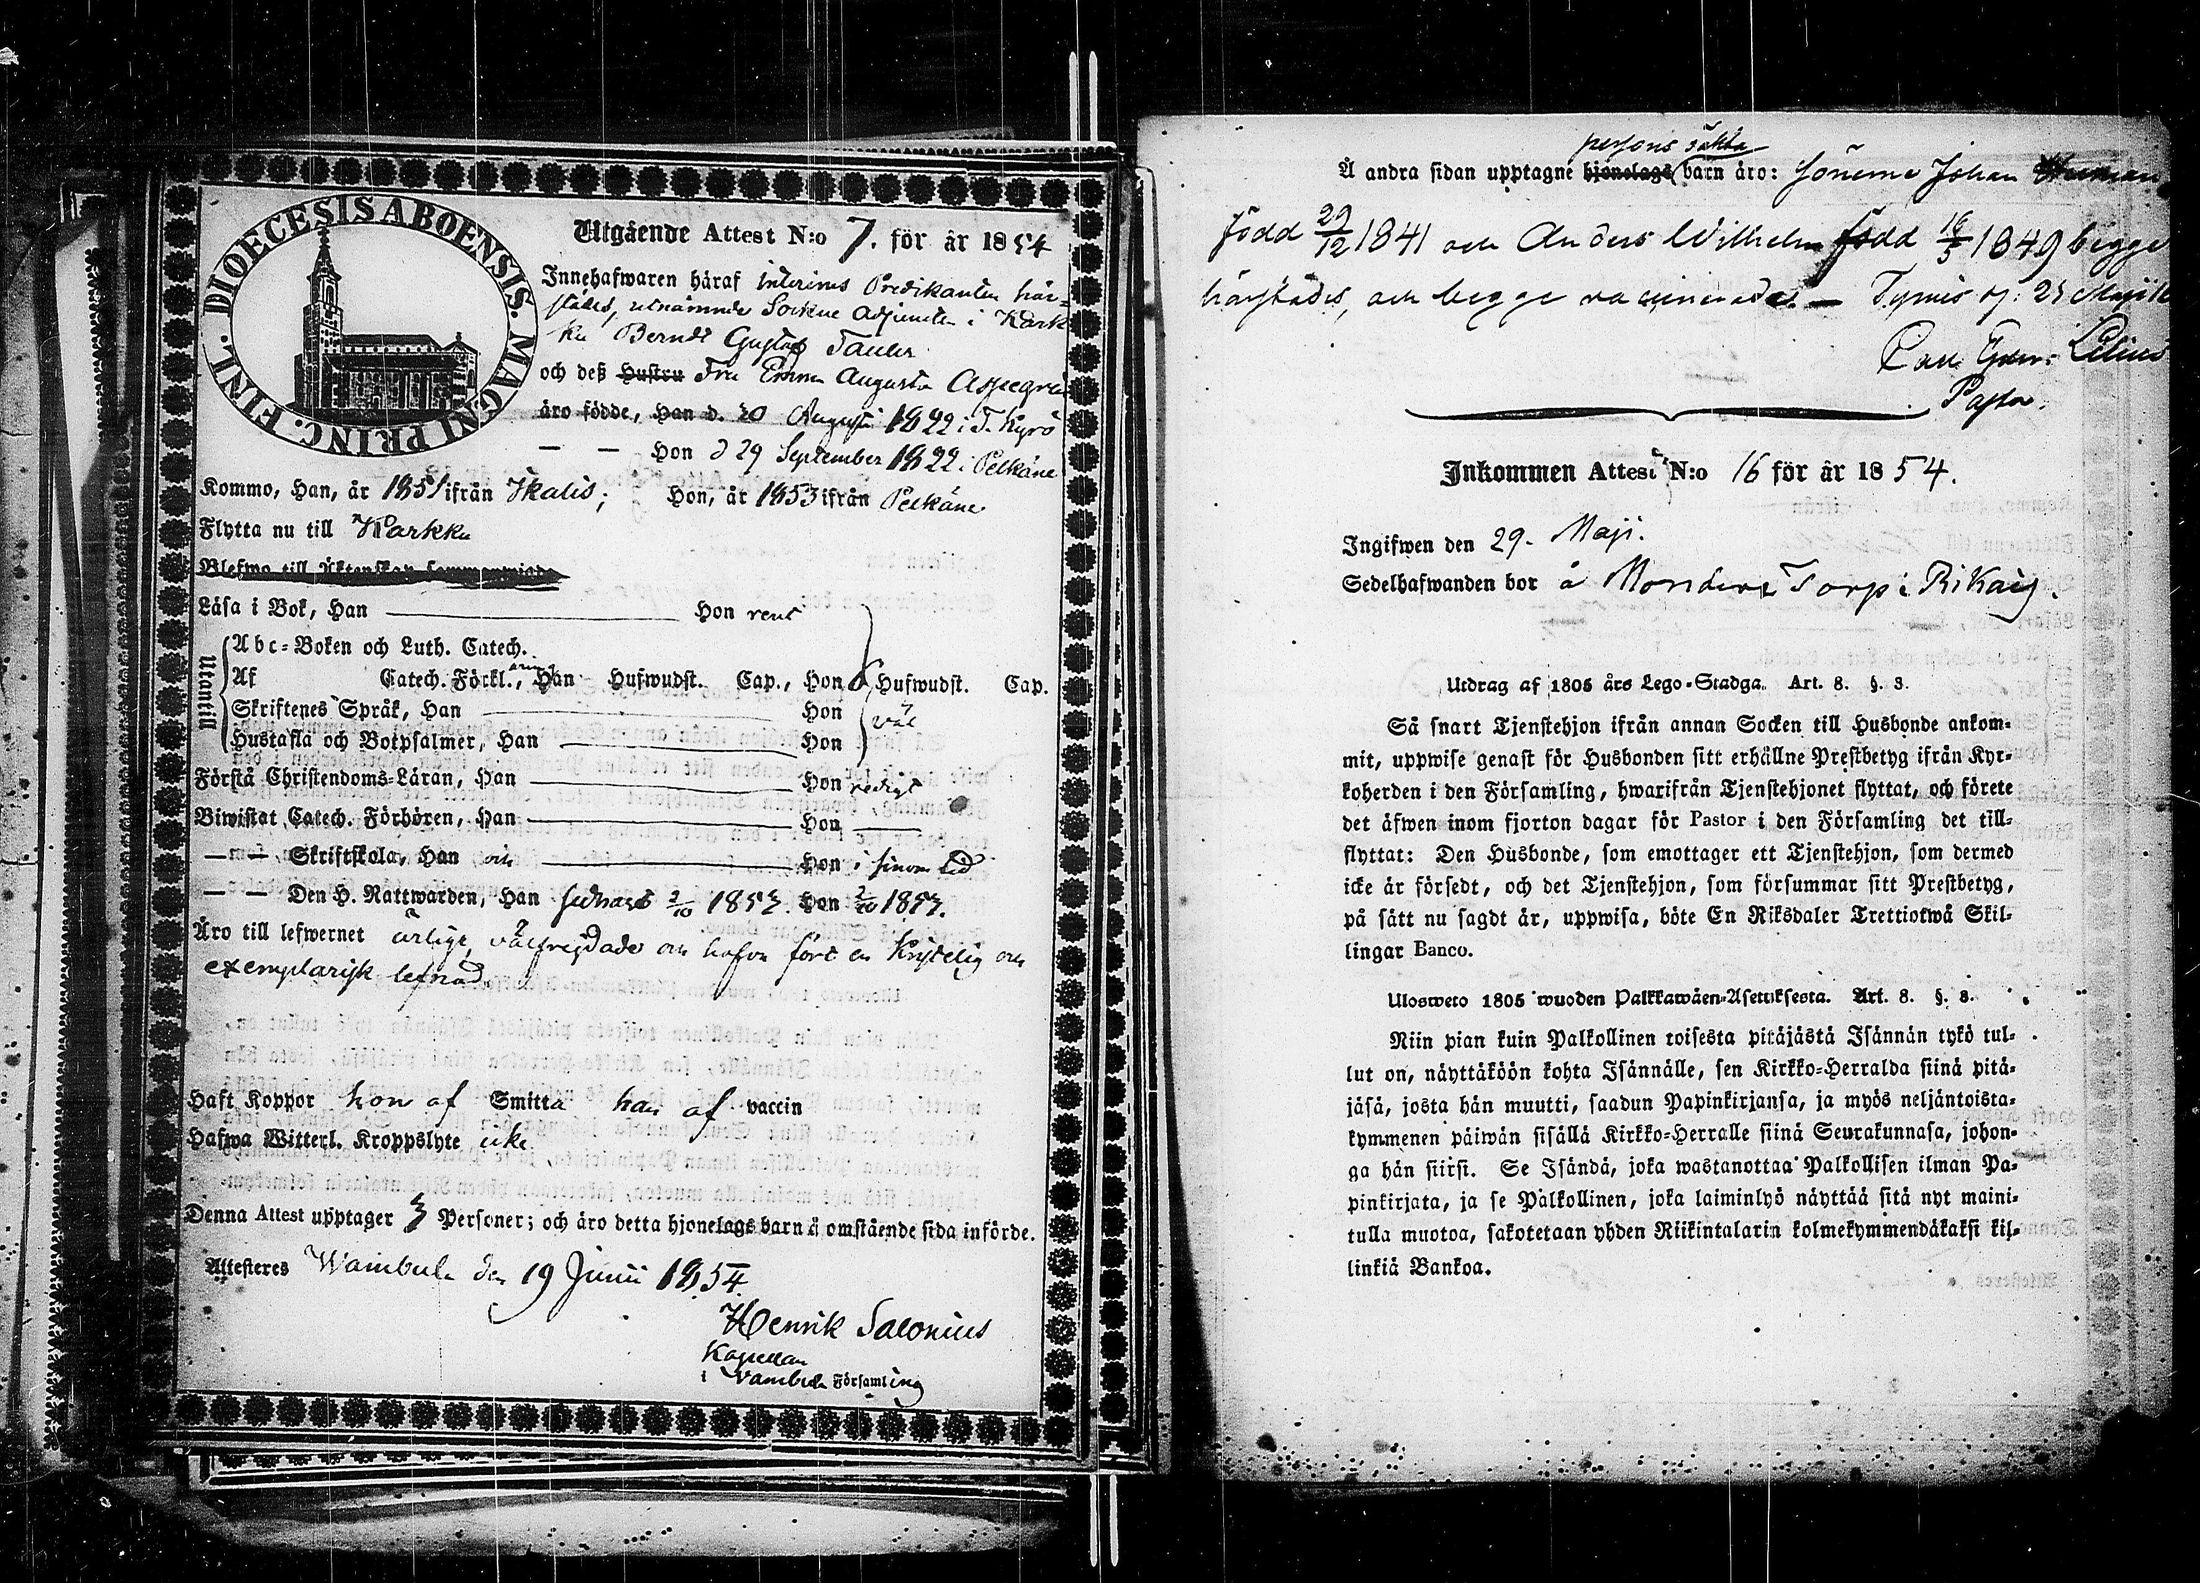 DIOECESIS ABOENSIS. MAGNI PRINC. FINL.
Utgående Attest N:o 7. för år 1854
Innehafwaren häraf interims Predikanten här-
städes, utnämnde Sockne Adjuncten i Kark
ku Berndt Gustaf Tauler
och deß Hustru Fru Emma Augusta Aspegren
äro födde, Han d. 20 Augusti 1822 i T. Kyrö
— — Hon d 29 September 1822 i Pelkäne
Kommo, Han, år 1851 ifrån Ikalis; Hon, år 1853 ifrån Pelkäne
Flytta nu till Karkku
Blefwo till Äktenskap sammanwigde
Läsa i Bok, Han Hon rent
Utantill
Abc-Boken och Luth. Catech.
Af Catech. Förkl., Han Hufwudst. Cap., Hon Hufwudst. Cap.
Skriftenes Språk, Han Hon väl
Hustafla och Botpsalmer, Han Hon
Förstå Christendoms-Läran, Han Hon redigt
Biwistat Catech. Förhören, Han Hon
— — Skriftskola, Han och Hon i sinom tid
— — Den H. Nattwarden, Han sednast 2/10 1853. Hon 2/10 1853.
Äro till lefwernet ärlige, välfrejdade och hafva fört en Kristelig och
exemplarisk lefnad.
Haft Koppor hon af Smitta han af vaccin
Hafwa Witterl. Kroppslyte icke
Denna Attest upptager 3 Personer; och äro detta hjonelags barn å omstående sida införde.
Attesteres Wambula den 19 Junii 1854.
Henrik Salonius
Kapellan
i Vambula Församling
persons äkta
Å andra sidan upptagne hjonelags barn äro: Sönerne Johan Herman
född 29/12 1841 och Anders Wilhelm född 18/5 1849 begge
härstädes, och begge vaccinerade. — Tyrvis d: 25 Maji
Carl Gust. Lilius
Pastor.
Inkommen Attest N:o 16 för år 1854.
Ingifwen den 29. Maji.
Sedelhafwanden bor å Torp i Rikais.
Utdrag af 1805 års Lego-Stadga. Art. 8. §. 3.
Så snart Tjenstehjon ifrån annan Socken till Husbonde ankom-
mit, uppwise genast för Husbonden sitt erhållne Prestbetyg ifrån Kyr-
koherden i den Församling, hwarifrån Tjenstehjonet flyttat, och förete
det äfwen inom fjorton dagar för Pastor i den Församling det till-
flyttat: Den Husbonde, som emottager ett Tjenstehjon, som dermed
icke är försedt, och det Tjenstehjon, som försummar sitt Prestbetyg,
på sätt nu sagdt är, uppwisa, böte En Riksdaler Trettiotwå Skil-
lingar Banco.
Ulosweto 1805 wuoden Palkkawäen-Asetuksesta. Art. 8. §. 3.
Niin pian kuin Palkollinen toisesta pitäjästä Isännän tykö tul-
lut on, näyttäköön kohta Isännälle, sen Kirkko-Herralda siinä pitä-
jäsä, josta hän muutti, saadun Papinkirjansa, ja myös neljäntoista-
kymmenen päiwän sisällä Kirkko-Herralle siinä Seurakunnasa, johon-
ga hän siirsi. Se Isändä, joka wastanottaa Palkollisen ilman Pa-
pinkirjata, ja se Palkollinen, joka laiminlyö näyttää sitä nyt maini-
tulla muotoa, sakotetaan yhden Riikintalarin kolmekymmendäkaksi kil-
linkiä Bankoa.